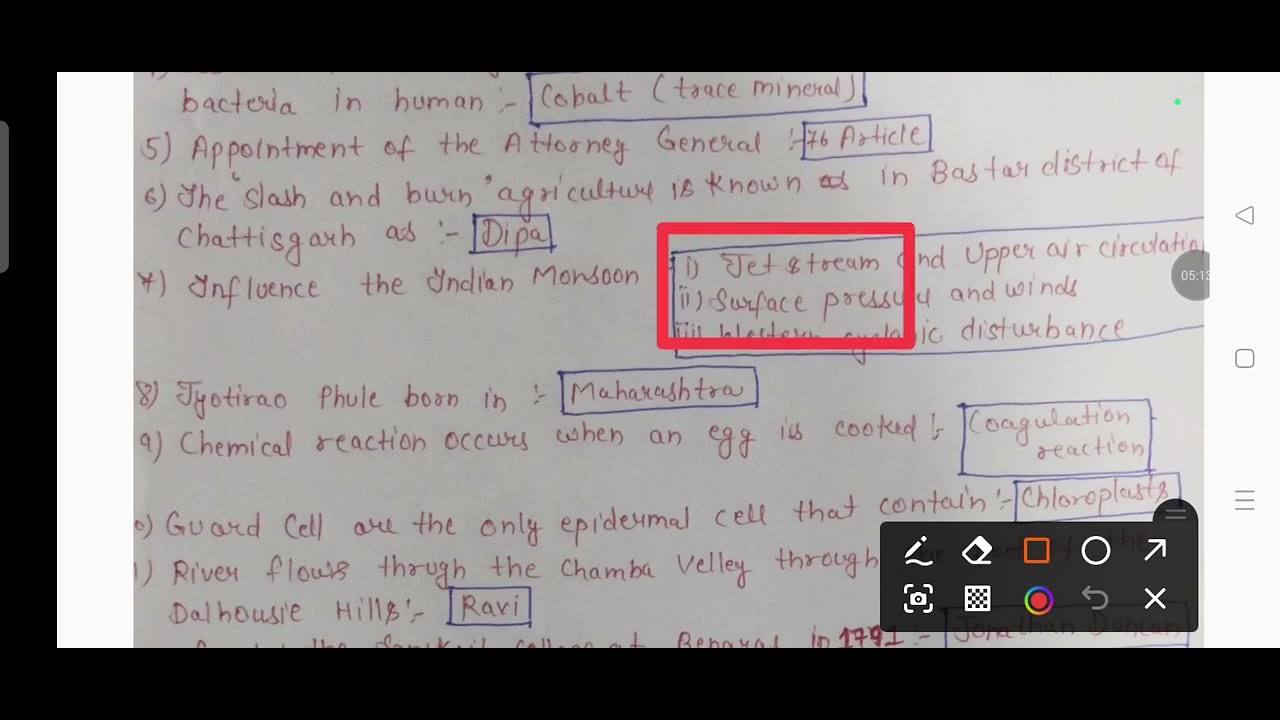 bacteria in human :- Cobalt (trace mineral)
5) Appointment of the Attorney General :- 76 Article
6) The "Slash and burn" agriculture is known as in Bastar district of
Chattisgarh as :- Dipa
7) Influence the Indian Monsoon
i) Jet stream and Upper air circulatio
ii) Surface pressure and winds
iii) Western cyclonic disturbance
05:13
8) Jyotirao Phule born in :- Maharashtra
9) Chemical reaction occurs when an egg is cooked :- Coagulation
reaction
0) Guard Cell are the only epidermal cell that contain :- Chloroplasts
1) River flows thrugh the Chamba Velley through the
Dalhousie Hills :- Ravi
at Benaras in 1791 :- Jonathan Duncan